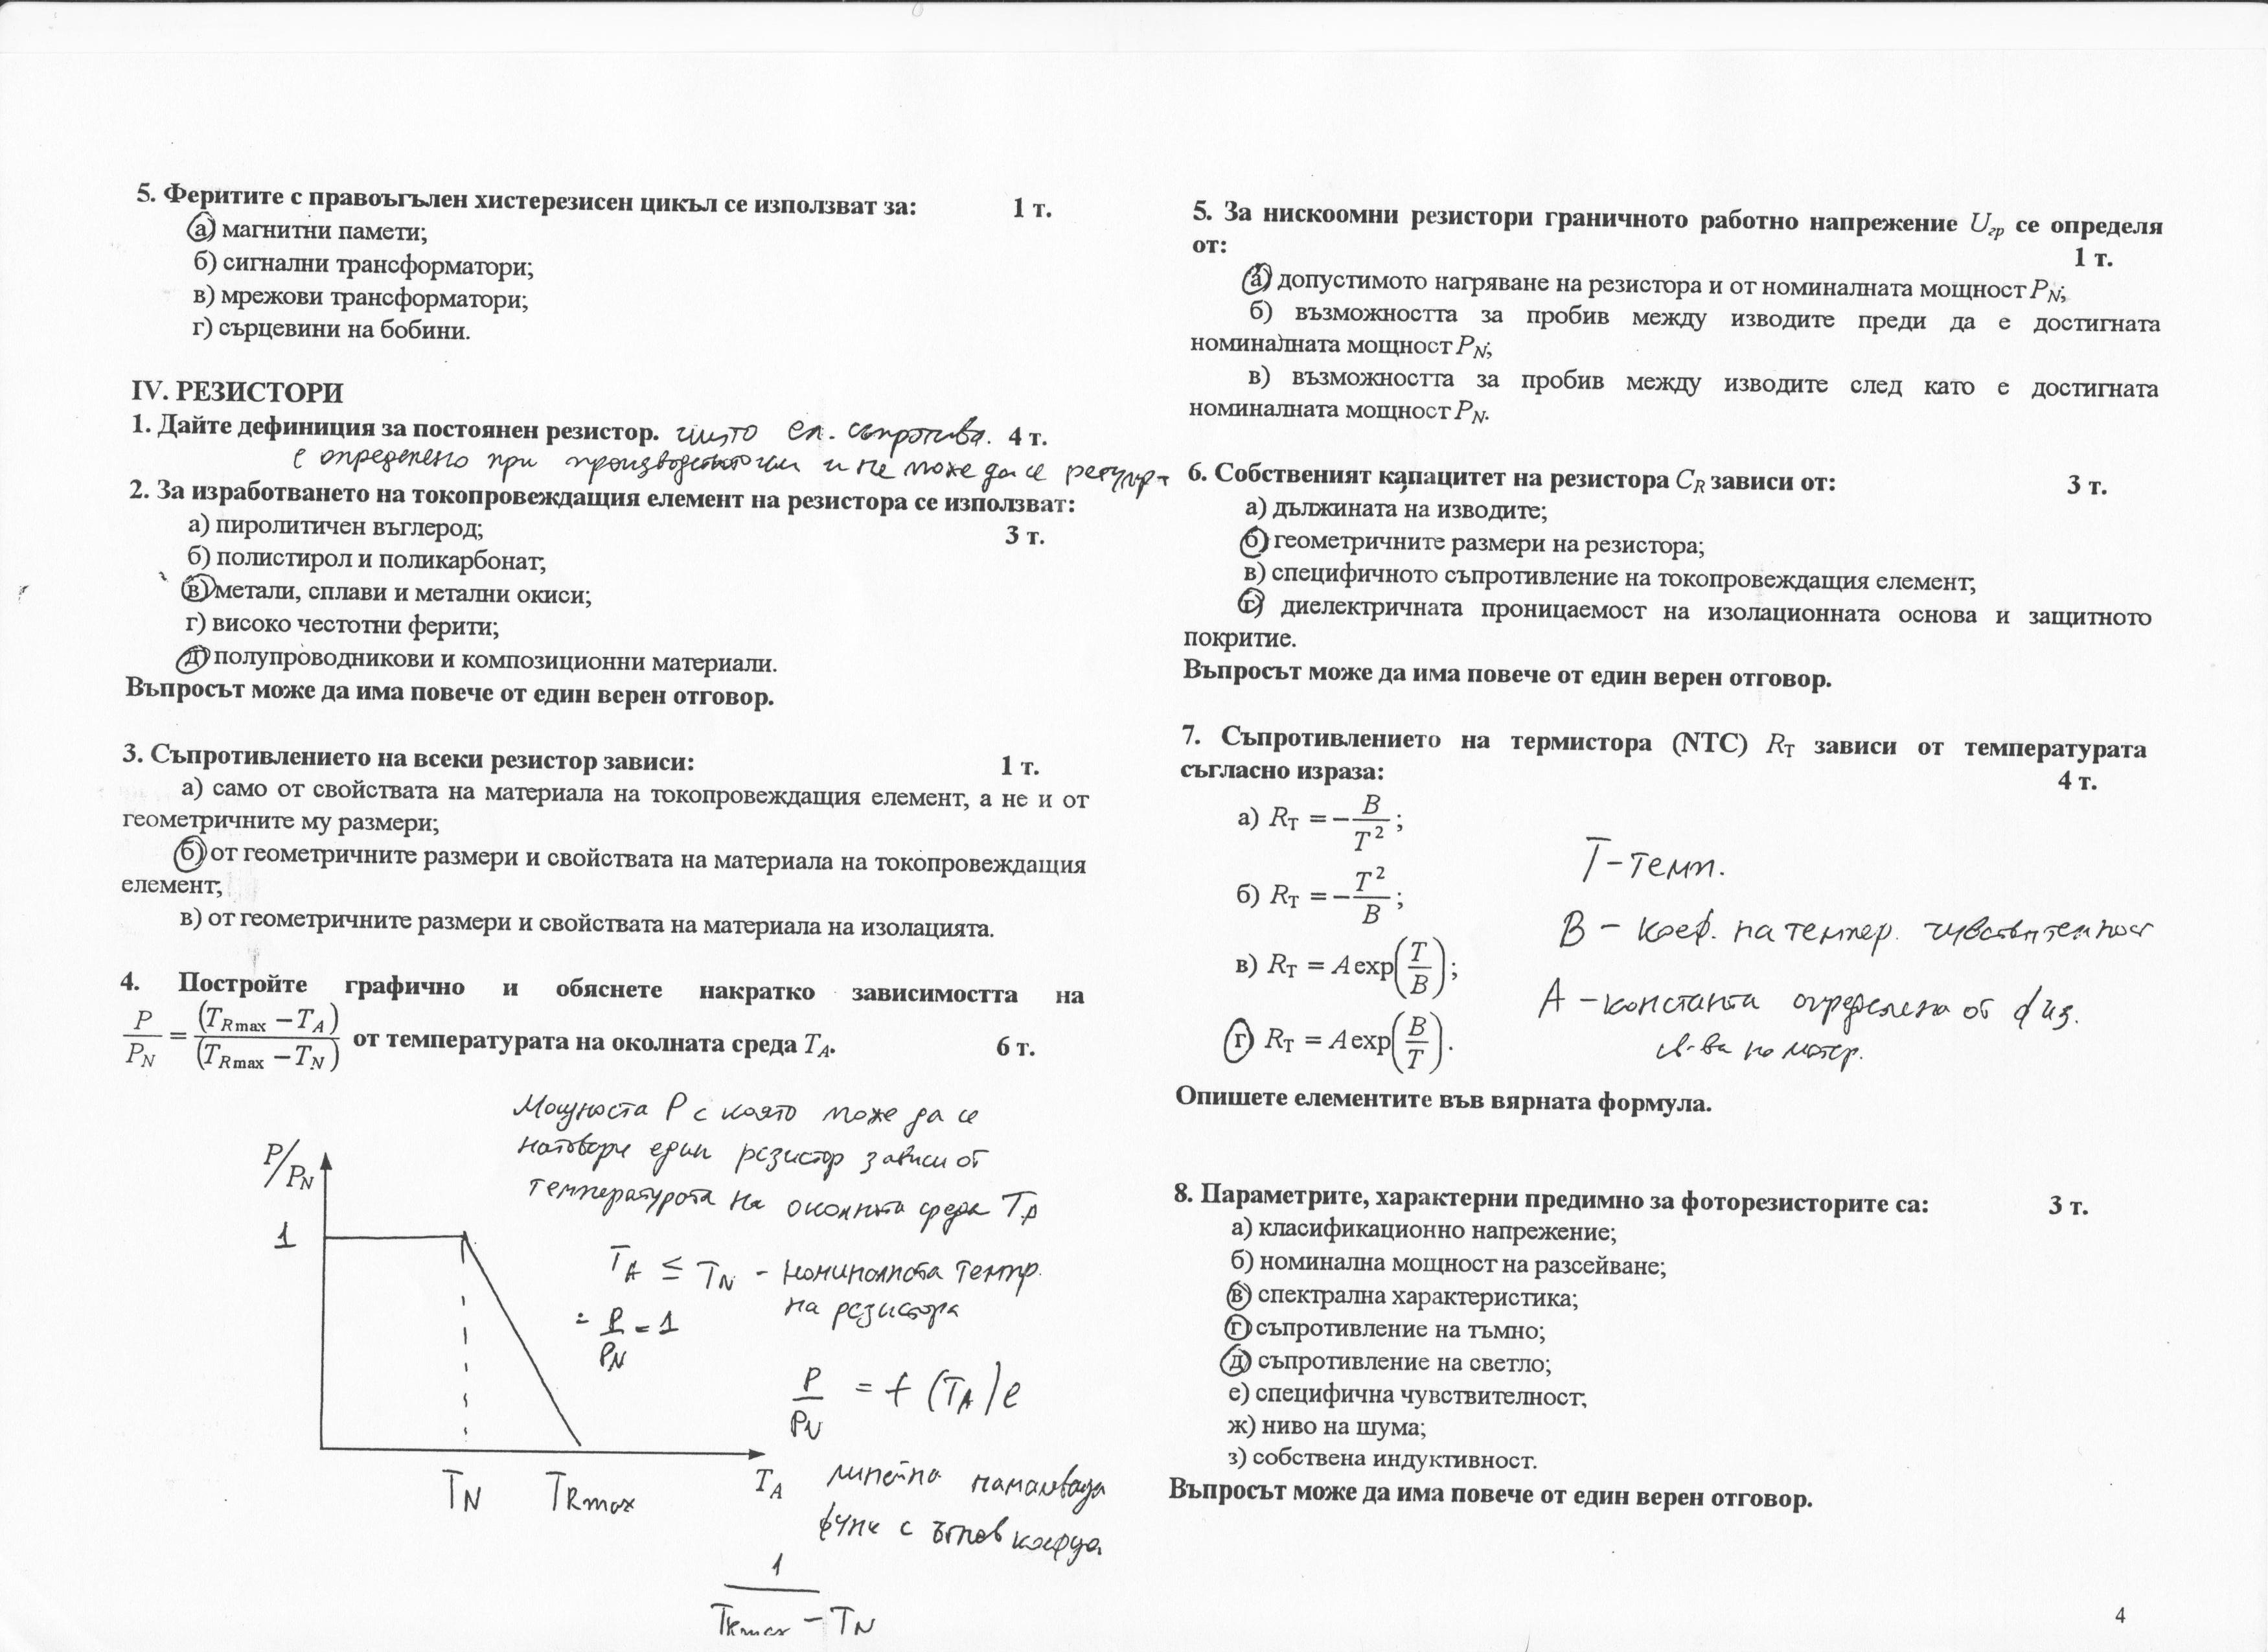 5. Феритите с правоъгълен хистерезисен цикъл се използват за: 1 т.
а) магнитни памети;
б) сигнални трансформатори;
в) мрежови трансформатори;
г) сърцевини на бобини.
IV. РЕЗИСТОРИ
1. Дайте дефиниция за постоянен резистор. чието ел. съпротива. 4 т.
е определено при производството им и не може да се регулир
2. За изработването на токопровеждащия елемент на резистора се използват:
а) пиролитичен въглерод; 3 т.
б) полистирол и поликарбонат;
в) метали, сплави и метални окиси;
г) високо честотни ферити;
д) полупроводникови и композиционни материали.
Въпросът може да има повече от един верен отговор.
3. Съпротивлението на всеки резистор зависи: 1 т.
а) само от свойствата на материала на токопровеждащия елемент, а не и от
геометричните му размери;
б) от геометричните размери и свойствата на материала на токопровеждащия
елемент;
в) от геометричните размери и свойствата на материала на изолацията.
4. Постройте графично и обяснете накратко зависимостта на
P/P_N = (T_Rmax − T_A)/(T_Rmax − T_N) от температурата на околната среда T_A. 6 т.
Мощноста P с която може да се
натовари един резистор зависи от
температурата на околната среда T_A
P/P_N
1
T_A ≤ T_N - номиналната темпр.
на резистора
= P/P_N = 1
P/P_N = f (T_A) е
T_N T_Rmax T_A
линейна намаляваща
функ с ъглов коефиц.
1/(T_Rmax − T_N)
5. За нискоомни резистори граничното работно напрежение U_гр се определя
от: 1 т.
а) допустимото нагряване на резистора и от номиналната мощност P_N;
б) възможността за пробив между изводите преди да е достигната
номиналната мощност P_N;
в) възможността за пробив между изводите след като е достигната
номиналната мощност P_N.
6. Собственият капацитет на резистора C_R зависи от: 3 т.
а) дължината на изводите;
б) геометричните размери на резистора;
в) специфичното съпротивление на токопровеждащия елемент;
г) диелектричната проницаемост на изолационната основа и защитното
покритие.
Въпросът може да има повече от един верен отговор.
7. Съпротивлението на термистора (NTC) R_T зависи от температурата
съгласно израза: 4 т.
а) R_T = −B/T²;
б) R_T = −T²/B;
в) R_T = A exp(T/B);
г) R_T = A exp(B/T).
T - темп.
B - коеф. на темпер. чувствителност
A - константа определена от физ.
св-ва на матер.
Опишете елементите във вярната формула.
8. Параметрите, характерни предимно за фоторезисторите са: 3 т.
а) класификационно напрежение;
б) номинална мощност на разсейване;
в) спектрална характеристика;
г) съпротивление на тъмно;
д) съпротивление на светло;
е) специфична чувствителност;
ж) ниво на шума;
з) собствена индуктивност.
Въпросът може да има повече от един верен отговор.
4